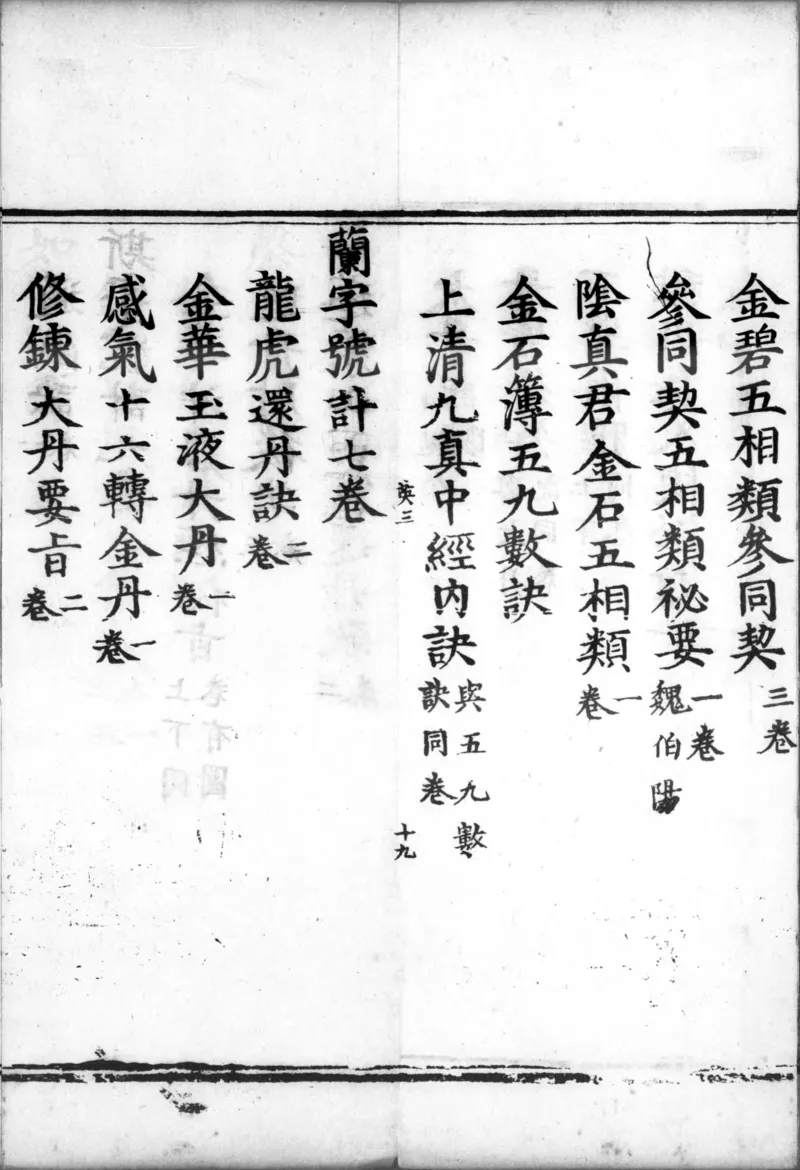 金碧五相類參同契三卷
參同契五相類祕要一卷魏伯陽
陰真君金石五相類一卷
金石簿五九數訣
上清九真中經内訣與五九數訣同卷
英三
十九
蘭字號計七卷
龍虎還丹訣二卷
金華玉液大丹一卷
感氣十六轉金丹一卷
修鍊大丹要旨二卷